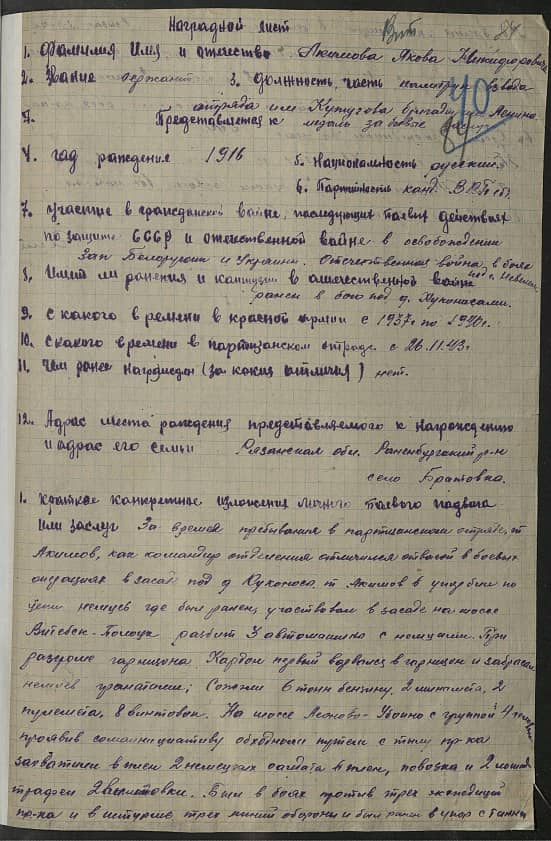 Наградной лист
Вит
84
1. Фамилия Имя и отчество Акимова Якова Никифоровича
2. Звание сержант 3. должность, часть взвода
отряда им Кутузова бригады
40
7. Представляется к медаль за боевые
4. год рождения 1916 5. Национальность русский
6. Партийность канд.
7. участие в гражданской войне, последующих боевых действиях
по защите СССР и отечественной войне в освобождении
Зап Белоруссии и Украины. Отечественная война, в боях
8. Имеет ли ранения и контузии в отечественной войне
ранен в бою под д.
9. с какого времени в красной армии с 1937г по 1940г.
10. С какого времени в партизанском отряде с 26.11.43г.
11. Чем ранее награжден (за какия отличия) нет.
12. Адрес места рождения представляемого к награждению
и адрес его семьи Рязанская обл. Раненбургский р-н
село
1. краткое конкретное изложения личного боевого подвига
или заслуг За время пребывания в партизанском отряде, т
Акимов, как командир отделения отличился отвагой в боевых
операциях в засаде под д т. Акимов в упор бил по
немцев где был ранен, участвовал в засаде на шоссе
Витебск-Полоцк разбит 3 автомашины с немцами. При
разгроме гарнизона первый ворвался в гарнизон и забрасал
немцев гранатами; Сожжен 6 тонн бензину, 2 миномета, 2
пулемета, 8 винтовок. На шоссе с группой 4
проявив самоинициативу обходным путем с тылу пр-ка
захватили в плен 2 немецких солдата повозка и 2
трафеи 2 винтовки. Был в боях против трех экспедиций
пр-ка и в штурме трех линий обороны и был ранен в упор с танка